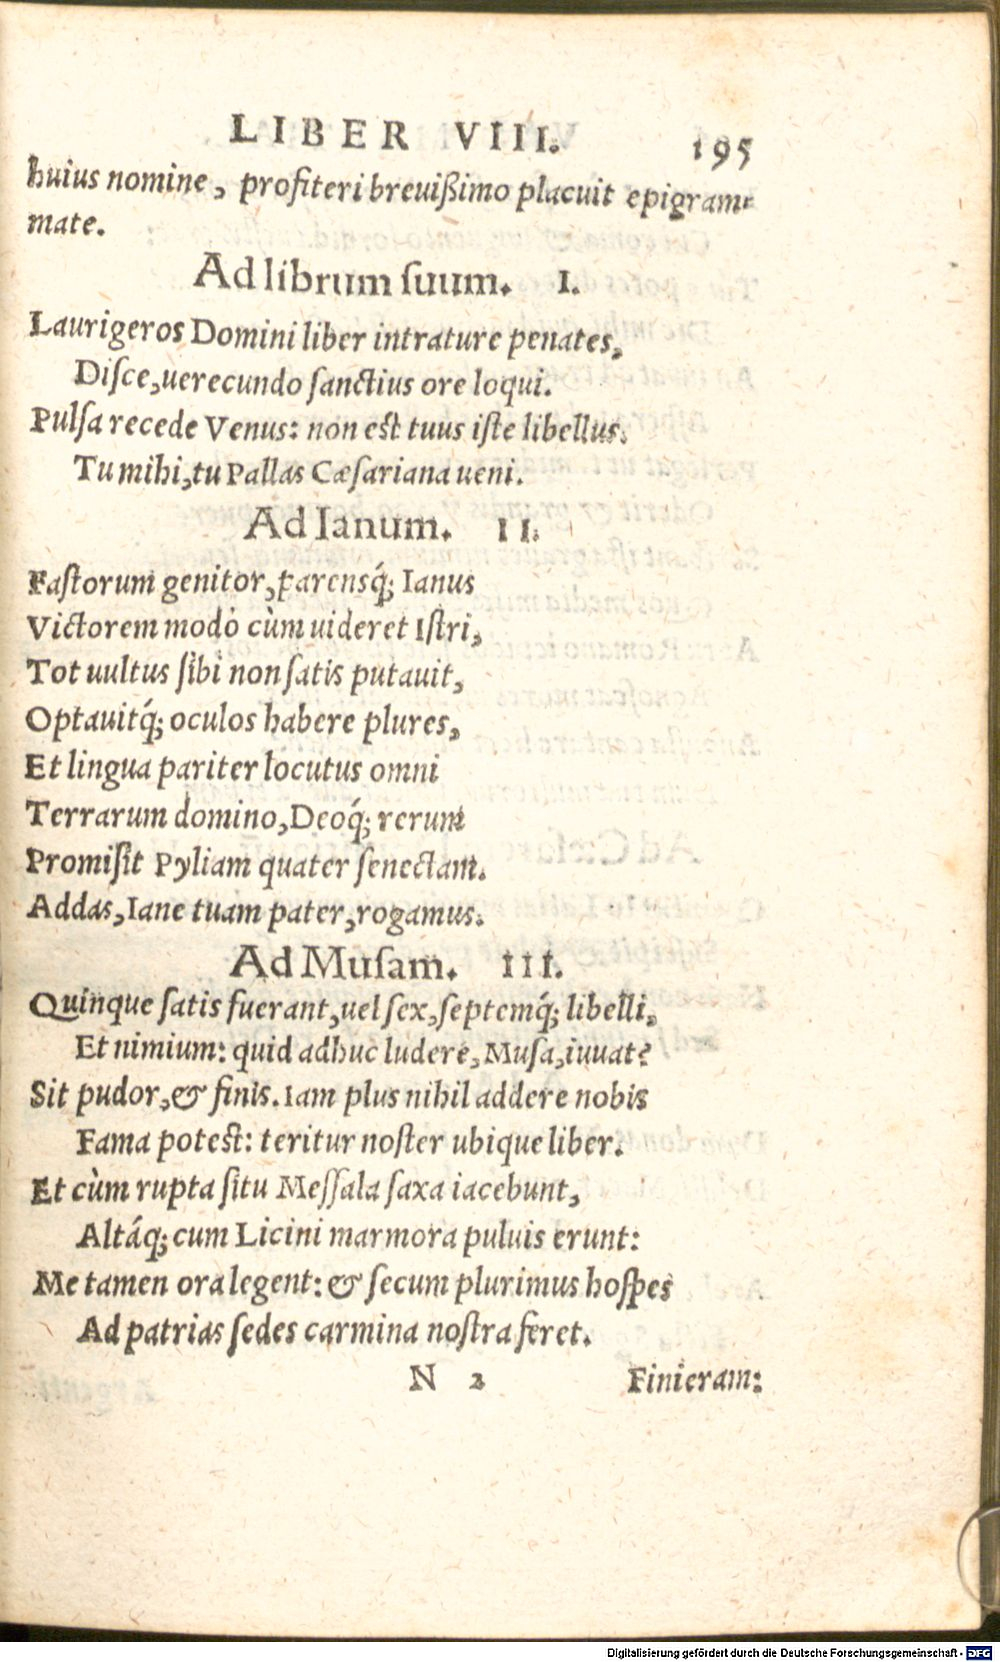 LIBER VIII. 195
huius nomine, profiteri breuißimo placuit epigram-
mate.
Ad librum ſuum. I.
Laurigeros Domini liber intrature penates,
Diſce, uerecundo ſanctius ore loqui.
Pulſa recede Venus: non est tuus iſte libellus.
Tu mihi, tu Pallas Cæſariana ueni.
Ad Ianum. II.
Faſtorum genitor, parensq́; Ianus
Victorem modò cùm uideret Iſtri,
Tot uultus ſibi non ſatis putauit,
Optauitq́; oculos habere plures,
Et lingua pariter locutus omni
Terrarum domino, Deoq́; rerum
Promiſit Pyliam quater ſenectam.
Addas, Iane tuam pater, rogamus.
Ad Muſam. III.
Quinque ſatis fuerant, uel ſex, ſeptemq́; libelli,
Et nimium: quid adhuc ludere, Muſa, iuuat?
Sit pudor, & finis. Iam plus nihil addere nobis
Fama potest: teritur noſter ubique liber.
Et cùm rupta ſitu Meſſala ſaxa iacebunt,
Altáq; cum Licini marmora puluis erunt:
Me tamen ora legent: & ſecum plurimus hoſpes
Ad patrias ſedes carmina noſtra feret.
N 2 Finieram:
Digitalisierung gefördert durch die Deutsche Forschungsgemeinschaft - DFG